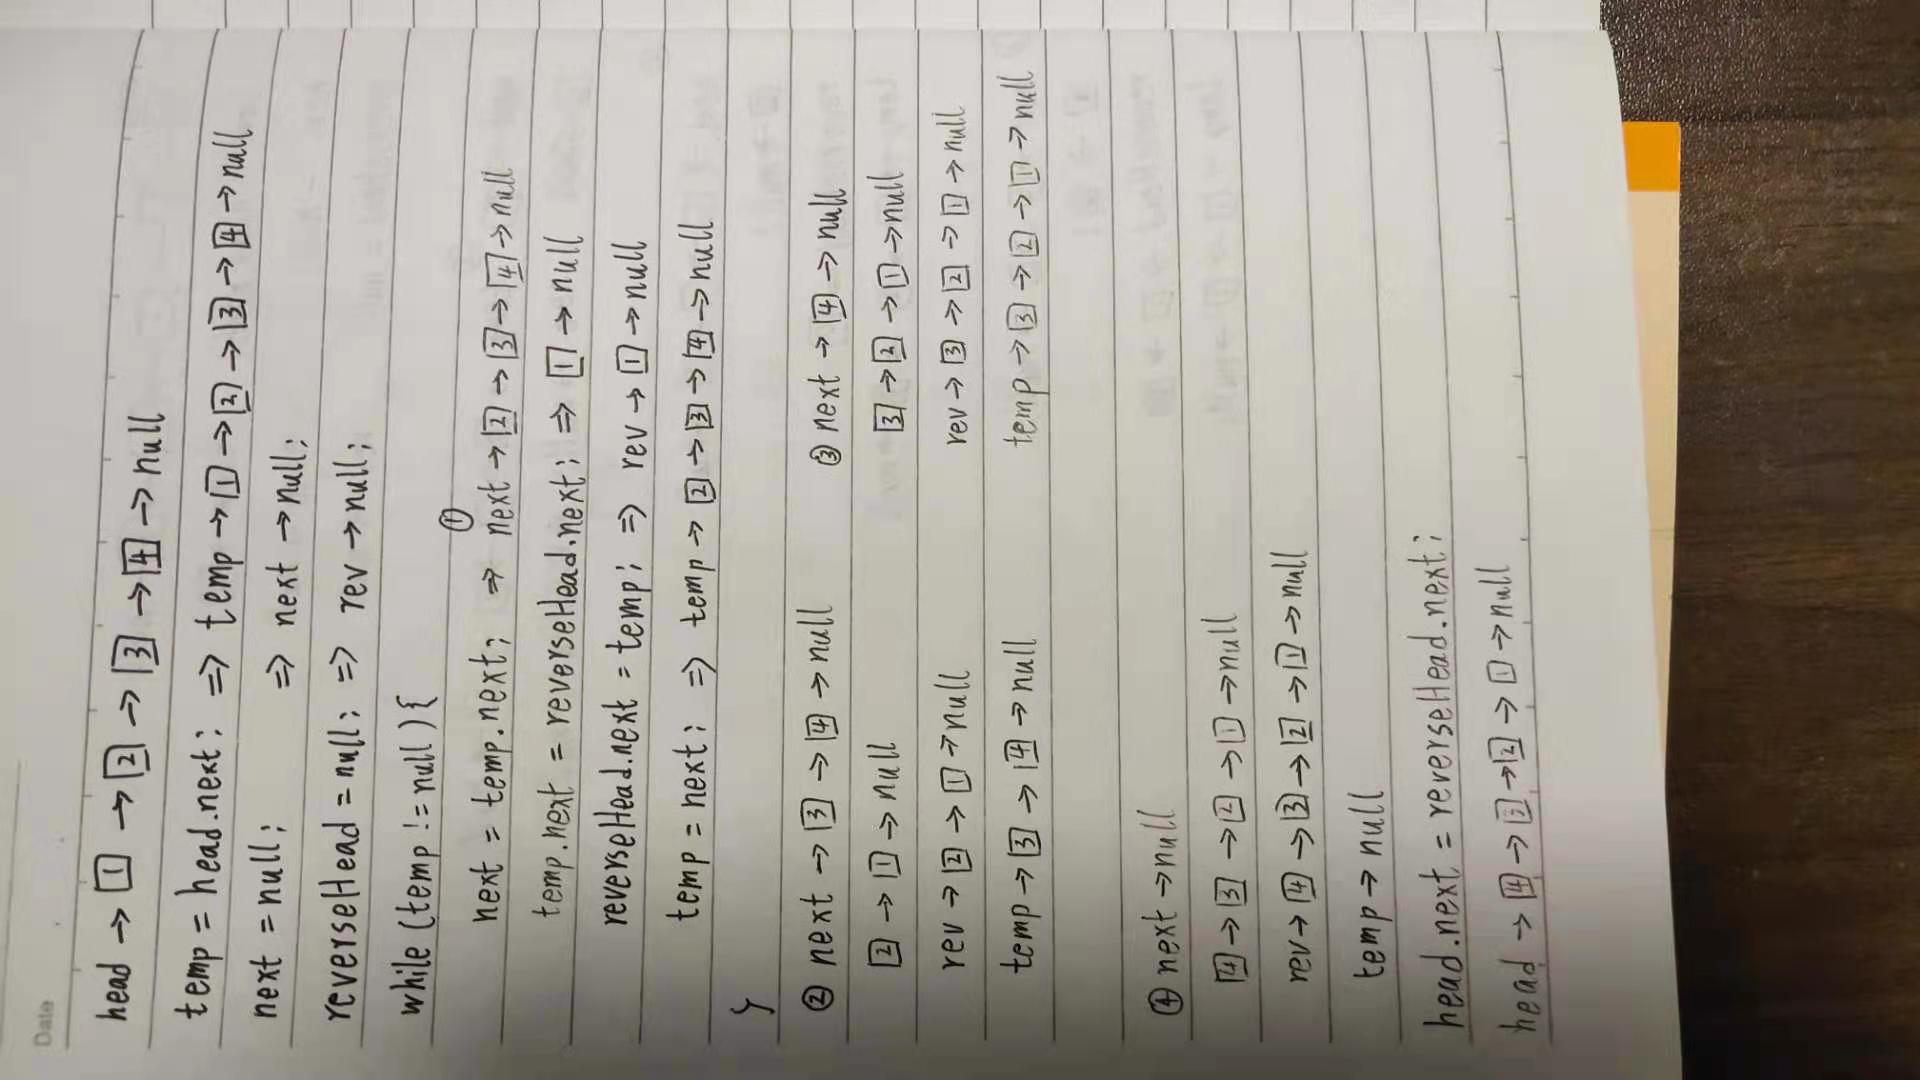 Date
head → [1] → [2] → [3] → [4] → null
temp = head.next; ⇒ temp → [1] → [2] → [3] → [4] → null
next = null; ⇒ next → null;
reverseHead = null; ⇒ rev → null;
while (temp != null) {
①
next = temp.next; ⇒ next → [2] → [3] → [4] → null
temp.next = reverseHead.next; ⇒ [1] → null
reverseHead.next = temp; ⇒ rev → [1] → null
temp = next; ⇒ temp → [2] → [3] → [4] → null
}
② next → [3] → [4] → null ③ next → [4] → null
[2] → [1] → null [3] → [2] → [1] → null
rev → [2] → [1] → null rev → [3] → [2] → [1] → null
temp → [3] → [4] → null temp → [3] → [2] → [1] → null
④ next → null
[4] → [3] → [2] → [1] → null
rev → [4] → [3] → [2] → [1] → null
temp → null
head.next = reverseHead.next;
head → [4] → [3] → [2] → [1] → null